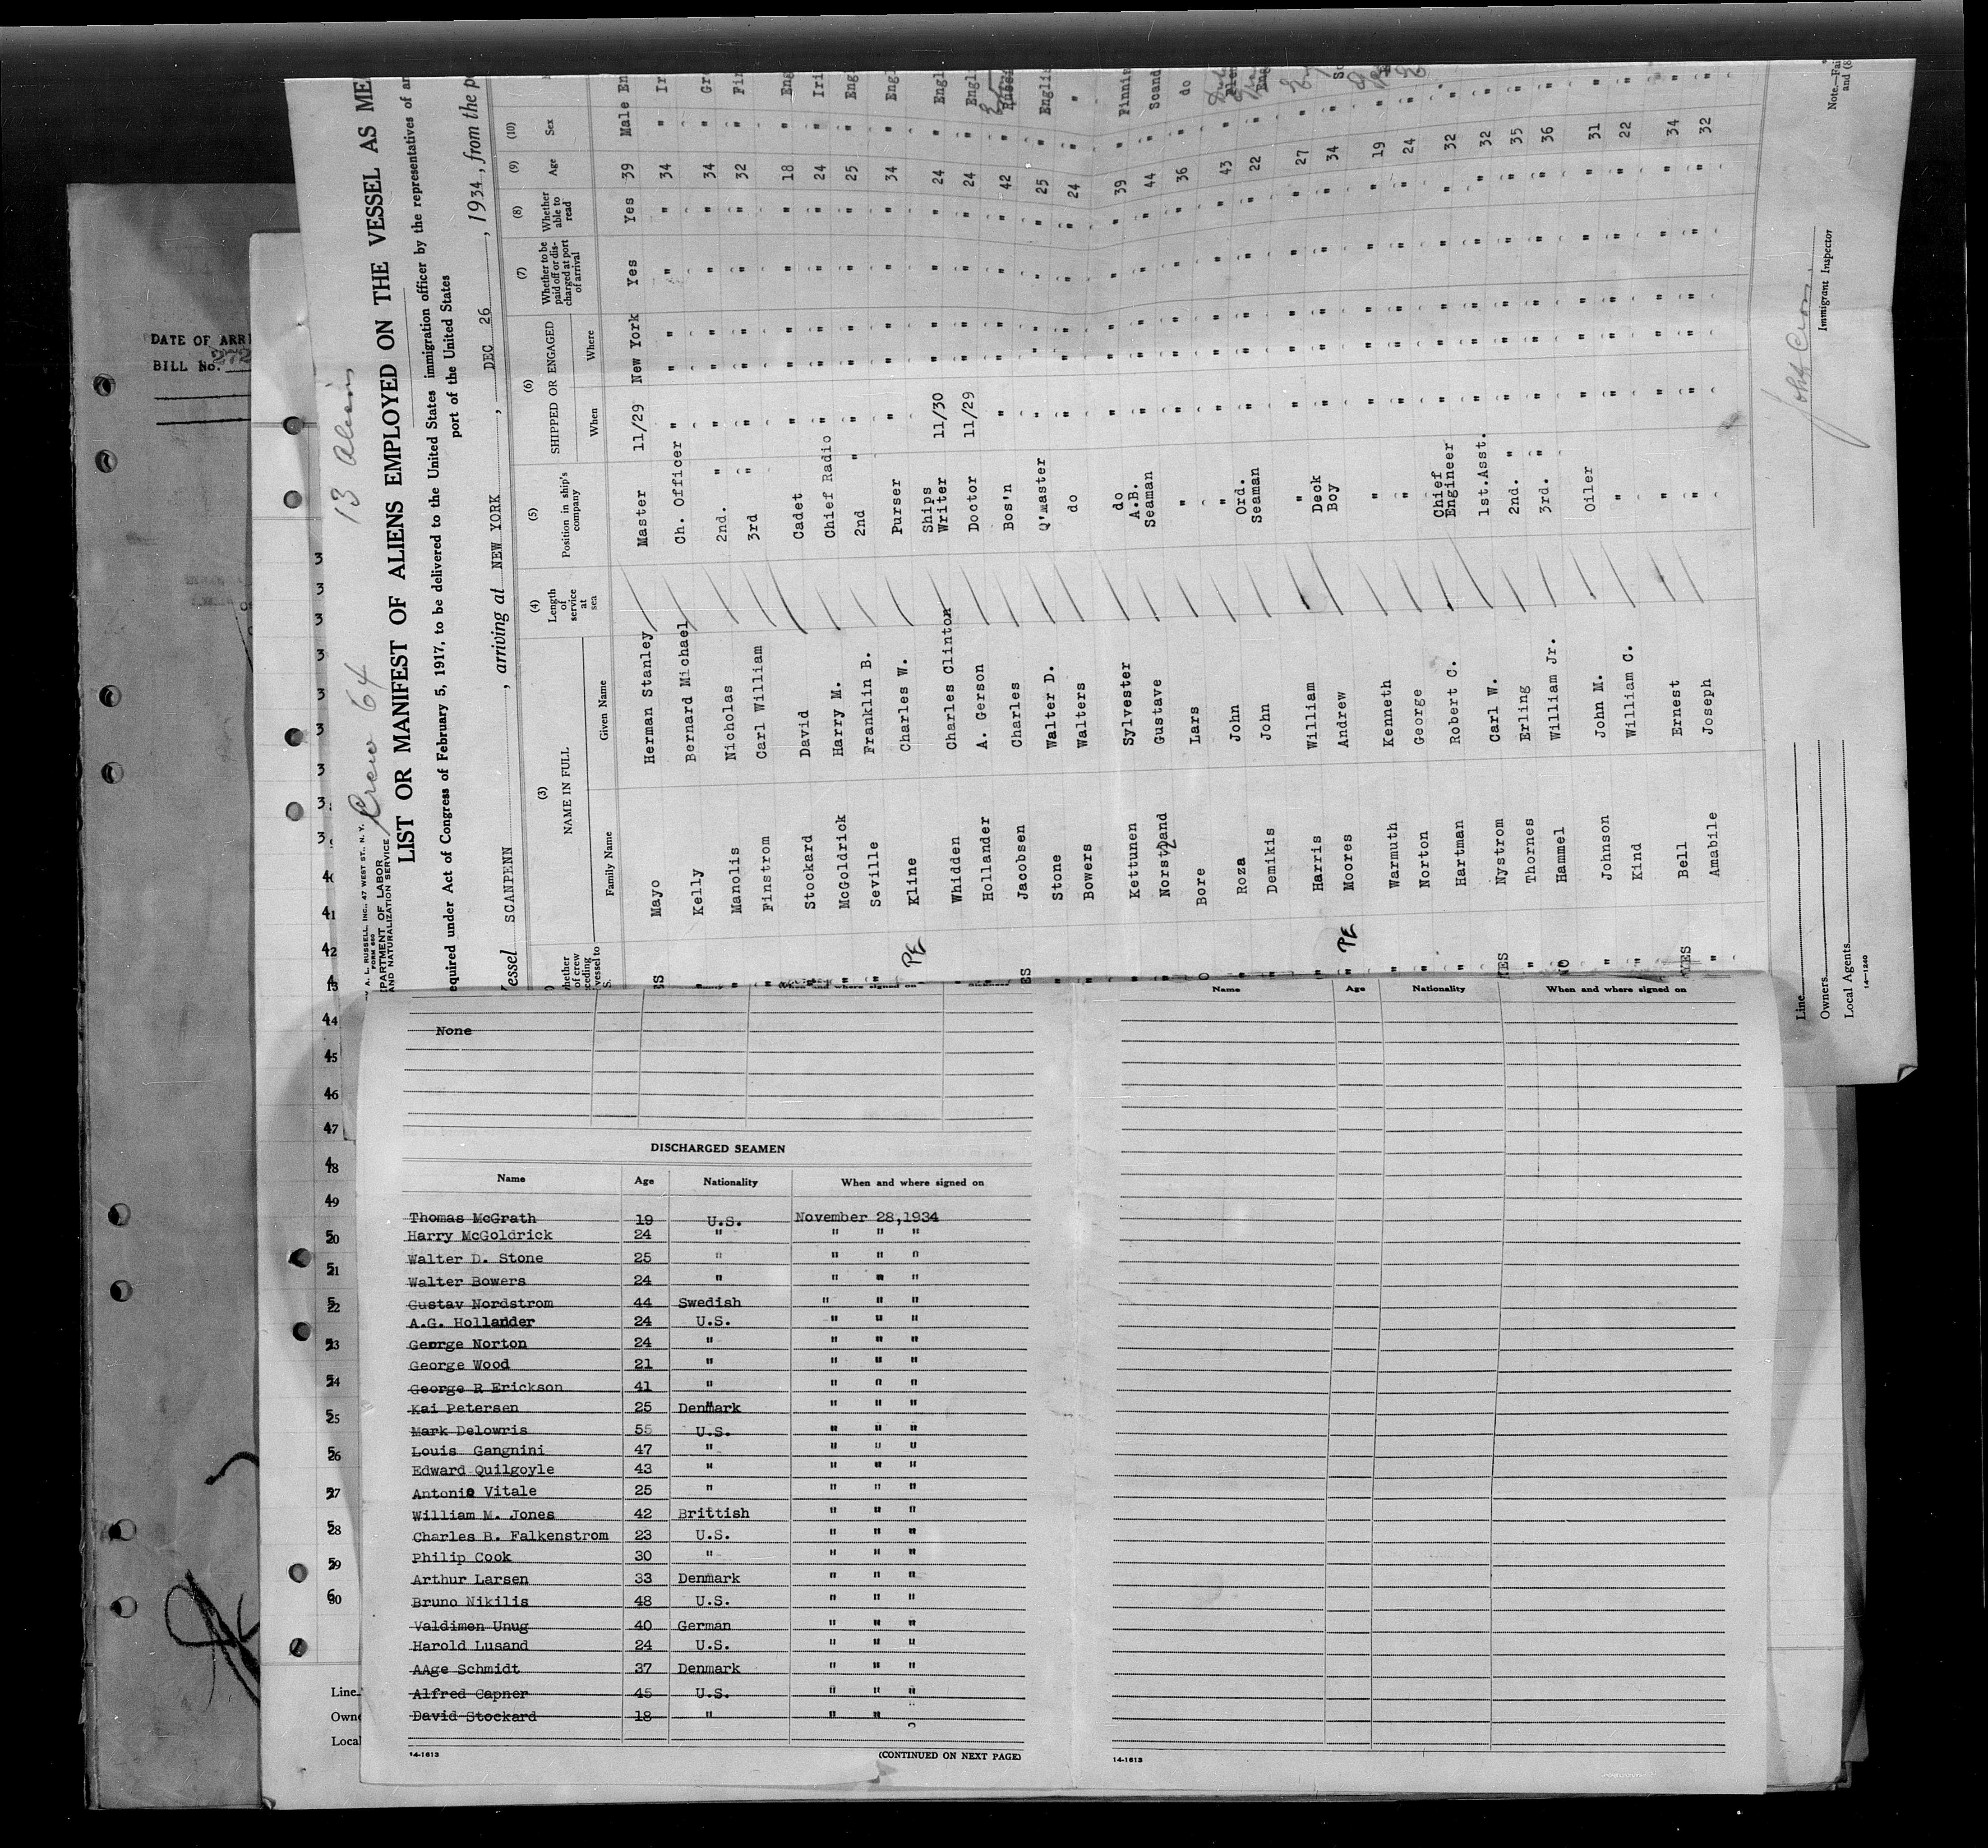 DATE OF ARRI
BILL No.
13 Aliens
Crew 64
A. L. RUSSELL, INC., 47 WEST ST., N. Y.
FORM 680
PARTMENT OF LABOR
AND NATURALIZATION SERVICE
LIST OR MANIFEST OF ALIENS EMPLOYED ON THE VESSEL AS ME
equired under Act of Congress of February 5, 1917, to be delivered to the United States immigration officer by the representatives of an
port of the United States
Vessel SCANPENN, arriving at NEW YORK, DEC 26, 1934, from the po
(3) (4) (5) (6) (7) (8) (9) (10)
NAME IN FULL
Family Name Given Name
Length of service at sea
Position in ship's company
SHIPPED OR ENGAGED
When Where
Whether to be paid off or discharged at port of arrival
Whether able to read
Age
Sex
Mayo Herman Stanley Master 11/29 New York Yes Yes 39 Male En
Kelly Bernard Michael Ch. Officer " " " " 34 " Ir
Manolis Nicholas 2nd. " " " " " 34 " Gr
Finstrom Carl William 3rd " " " " " 32 " Fin
Stockard David Cadet " " " " 18 " Eng
McGoldrick Harry M. Chief Radio " " " " 24 " Iri
Seville Franklin B. 2nd " " " " " 25 " Eng
PE Kline Charles W. Purser " " " " 34 " Engl
Whidden Charles Clinton Ships Writer 11/30 " " " 24 " Engl
Hollander A. Gerson Doctor 11/29 " " " 24 " Engl
Jacobsen Charles Bos'n " " " " 42 "
Stone Walter D. Q'master " " " " 25 " Englis
Bowers Walters do " " " " 24 " "
Kettunen Sylvester do " " " " 39 " Finnin
Gustave A.B. Seaman " " " " 44 " Scand
Bore Lars " " " " " 36 " do
Roza John " " " " " 43 "
Demikis John Ord. Seaman " " " " 22 "
Harris William " " " " " 27 "
PE Moores Andrew Deck Boy " " " " 34 "
Warmuth Kenneth " " " " " 19 "
Norton George " " " " " 24 "
Hartman Robert C. Chief Engineer " " " " 32 "
YES Nystrom Carl W. 1st.Asst. " " " " 32 "
" Thornes Erling 2nd. " " " " " 35 "
NO Hammel William Jr. 3rd. " " " " " 36 "
" Johnson John M. Oiler " " " " 31 "
" Kind William C. " " " " " 22 "
YES Bell Ernest " " " " " 34 "
" Amabile Joseph " " " " " 32 "
Line
Owners
Local Agents
14-1240
Immigrant Inspector
Note.—Fai
and (8
Name Age Nationality When and where signed on
None
DISCHARGED SEAMEN
Name Age Nationality When and where signed on
Thomas McGrath 19 U.S. November 28,1934
Harry McGoldrick 24 " " " "
Walter D. Stone 25 " " " "
Walter Bowers 24 " " " "
Gustav Nordstrom 44 Swedish " " "
A.G. Hollander 24 U.S. " " "
George Norton 24 " " " "
George Wood 21 " " " "
George R Erickson 41 " " " "
Kai Petersen 25 Denmark " " "
Mark Delowris 55 U.S. " " "
Louis Gangnini 47 " " " "
Edward Quilgoyle 43 " " " "
Antonio Vitale 25 " " " "
William M. Jones 42 Brittish " " "
Charles B. Falkenstrom 23 U.S. " " "
Philip Cook 30 " " " "
Arthur Larsen 33 Denmark " " "
Bruno Nikilis 48 U.S. " " "
Valdimen Unug 40 German " " "
Harold Lusand 24 U.S. " " "
AAge Schmidt 37 Denmark " " "
Alfred Capner 45 U.S. " " "
David Stockard 18 " " " "
14-1613
(CONTINUED ON NEXT PAGE)
14-1613
Line
Owne
Local